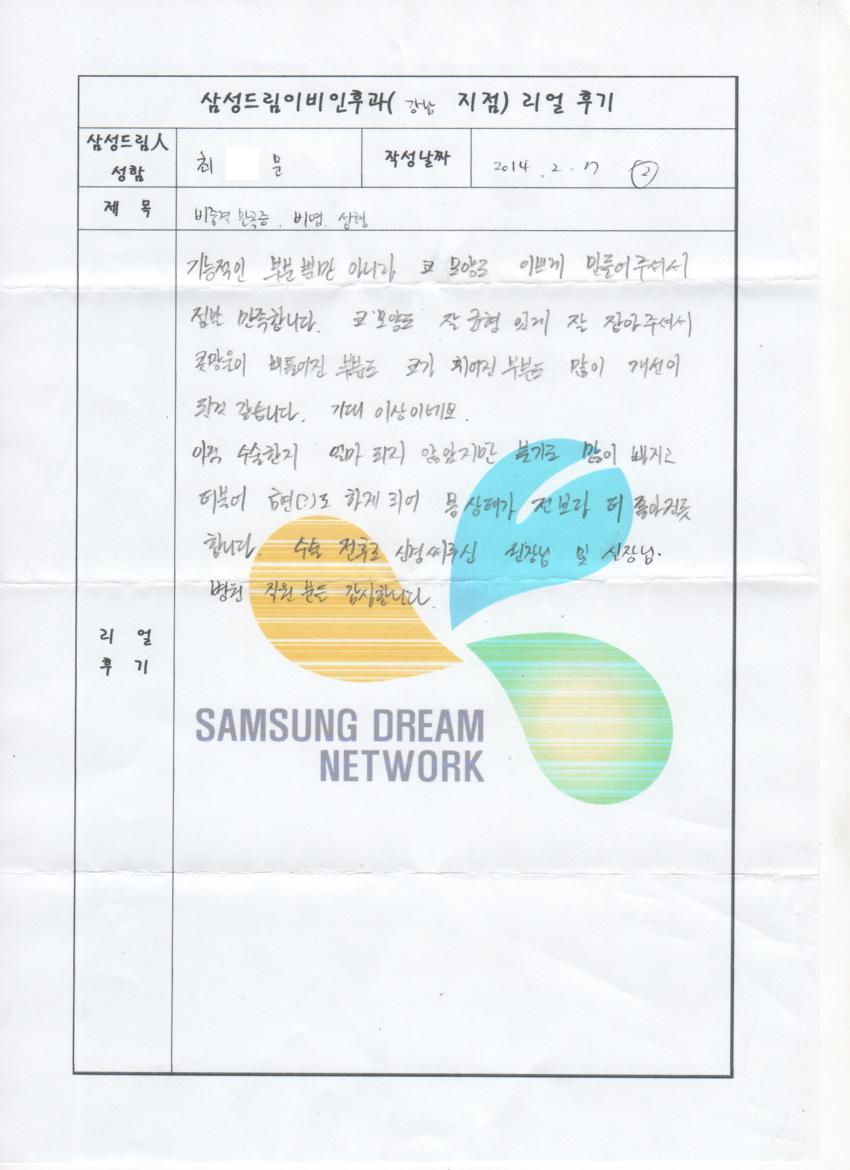 삼성드림이비인후과( 강남 지점) 리얼 후기
삼성드림人 성함
최 문
작성날짜
2014 . 2 . 17 ②
제 목
비중격 만곡증 . 비염 . 성형
리 얼 후 기
기능적인 부분 뿐만 아니라 코 모양도 이쁘게 만들어주셔서
정말 만족합니다. 코 모양도 잘 균형 있게 잘 잡아주셔서
콧망울이 비틀어진 부분도 코가 휘어진 부분도 많이 개선이
된것 같습니다. 기대 이상이네요.
아직 수술한지 얼마 되지 않았지만 붓기도 많이 빠지고
더불어 금연(?)도 하게 되어 몸 상태가 전보다 더 좋아진듯
합니다. 수술 전후로 신경써주신 원장님 및 실장님.
병원 직원 분들 감사합니다.
SAMSUNG DREAM
NETWORK